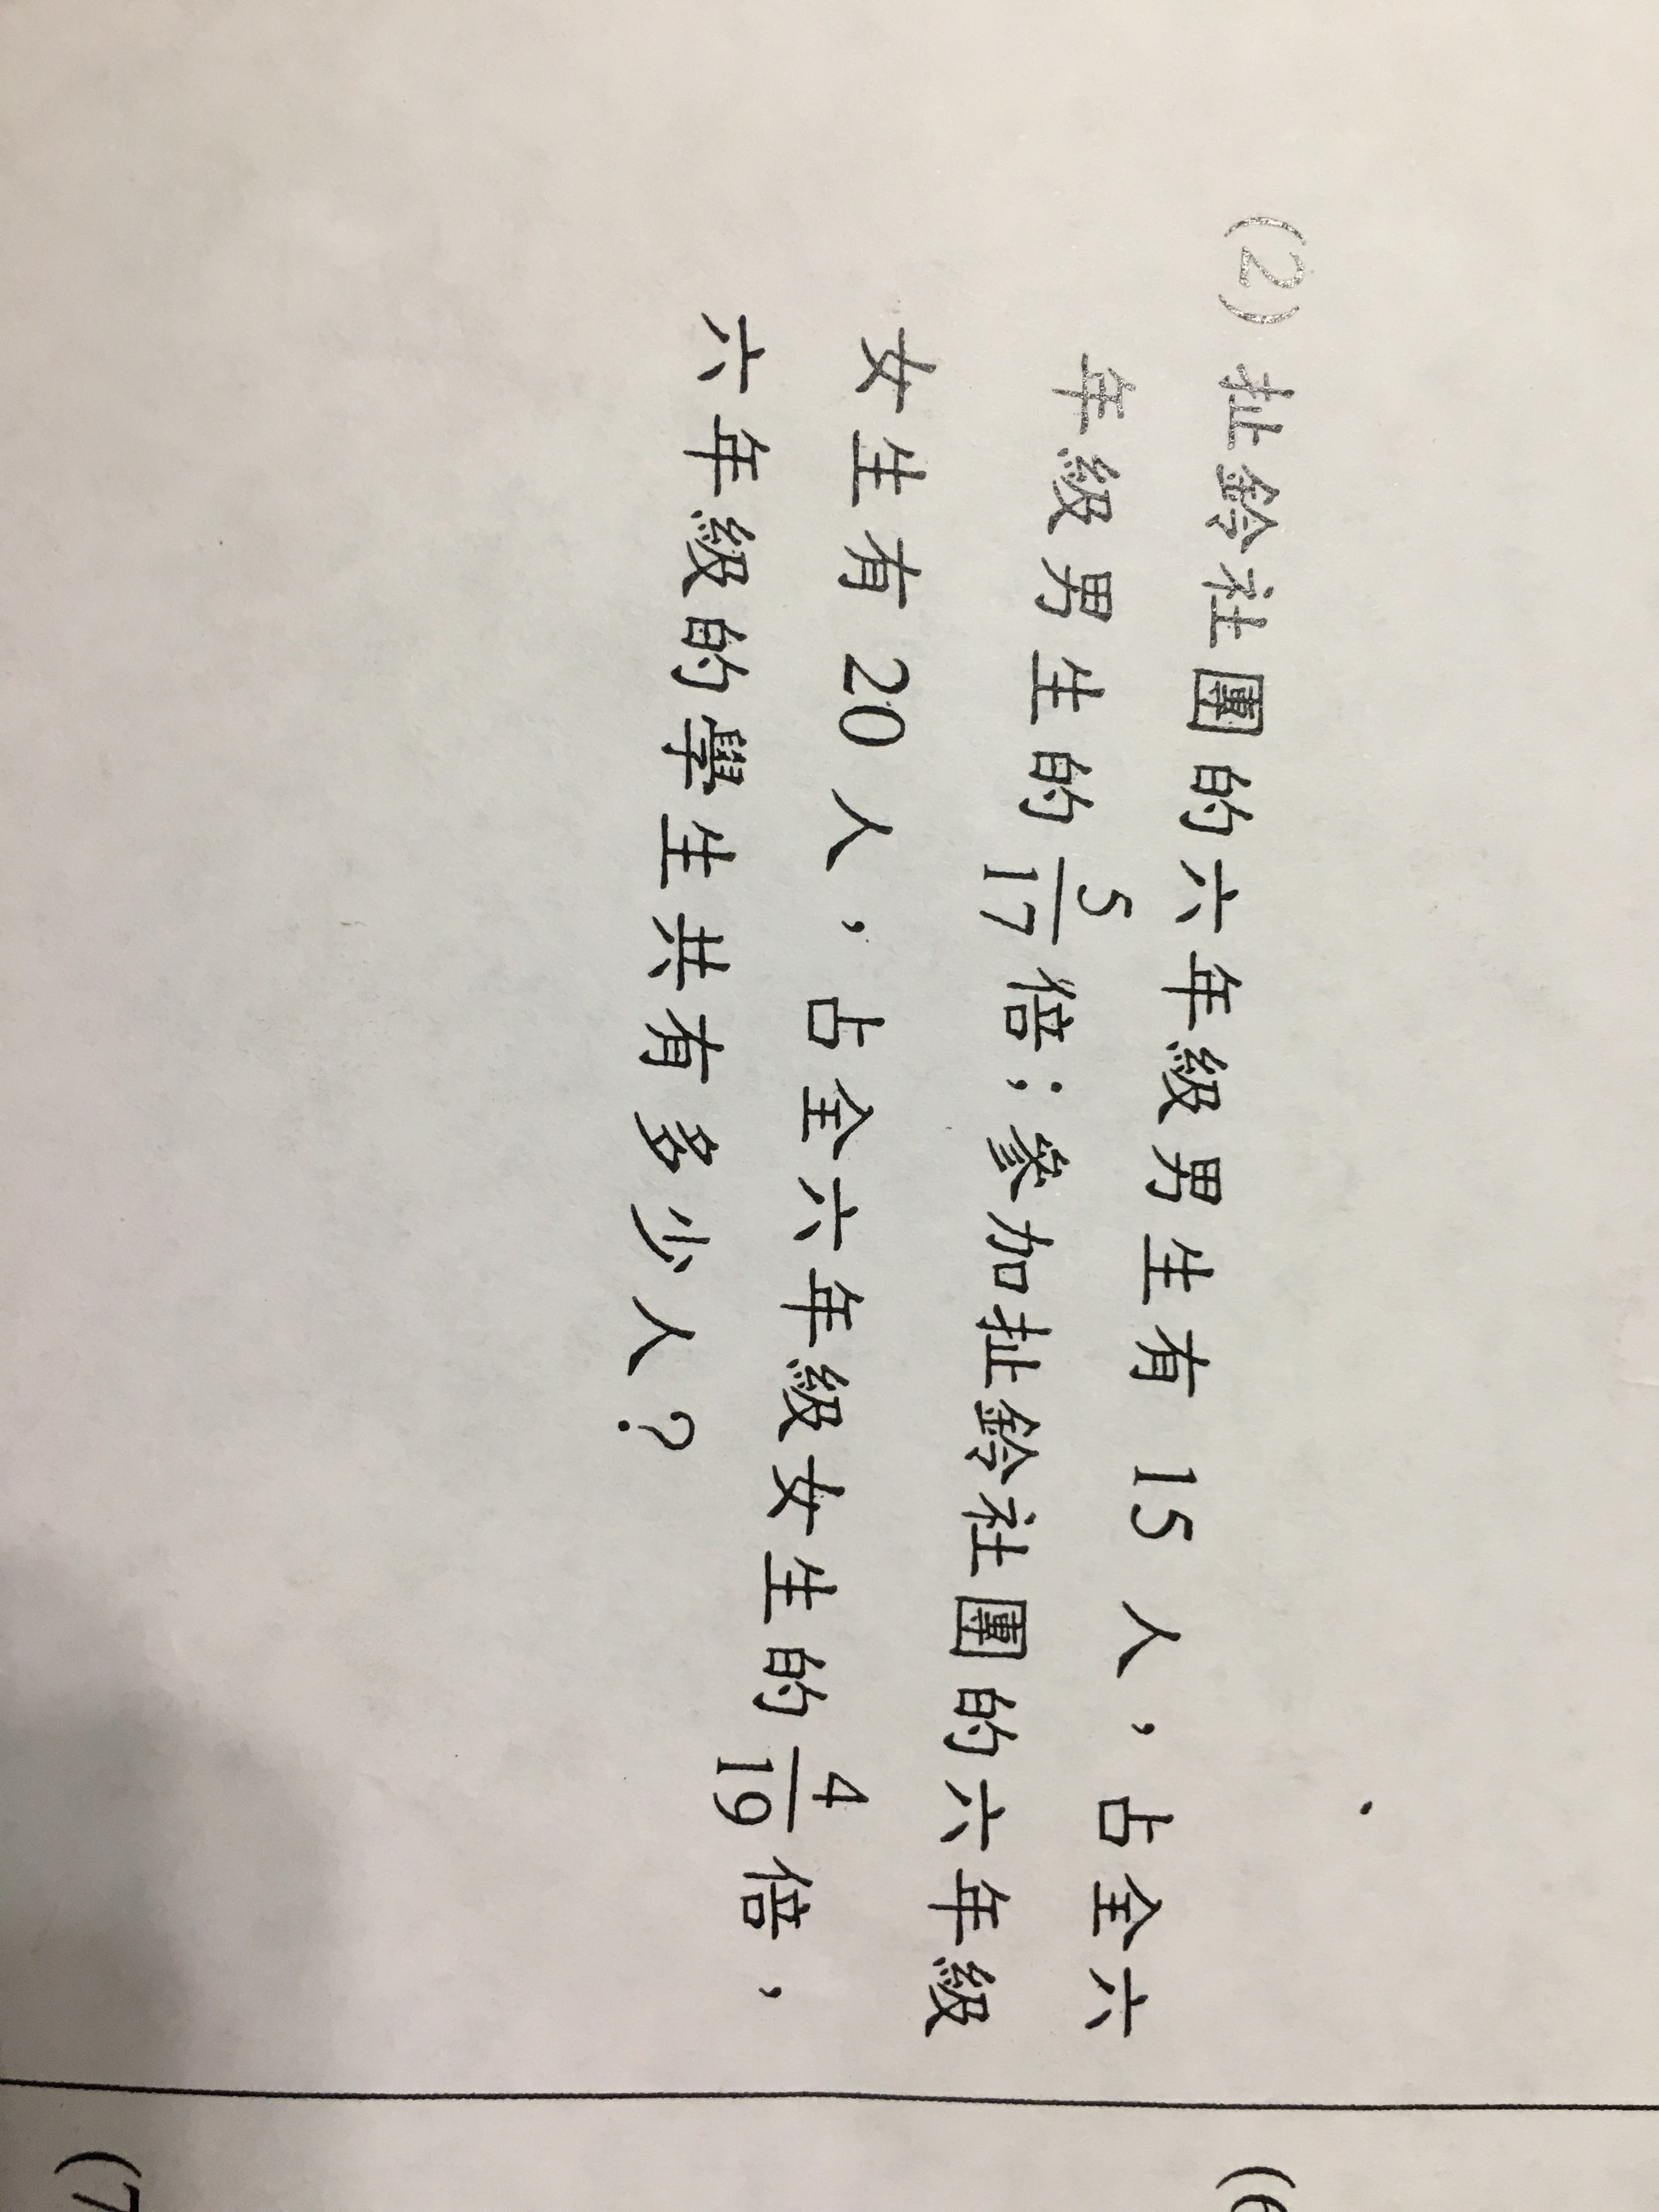 (2) 扯鈴社團的六年級男生有 15 人，占全六
年級男生的 5/17 倍；參加扯鈴社團的六年級
女生有 20 人，占全六年級女生的 4/19 倍，
六年級的學生共有多少人？
(6
(7